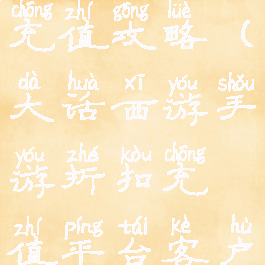 chōng zhí gōng lüè
充值攻略（
dà huà xī yóu shǒu
大话西游手
yóu zhé kòu chōng
游折扣充
zhí píng tái kè hù
值平台客户